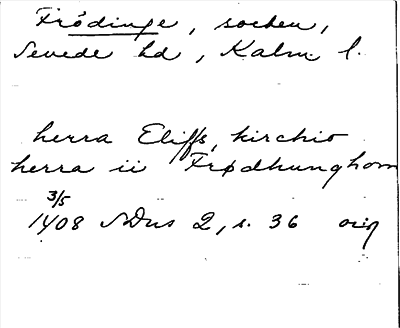 Frödinge, socken,
Sevede hd, Kalm l.
herra Eliffs, kirchio
herra ii Frødhunghom
3/5
1408 SDns 2, s. 36 orig